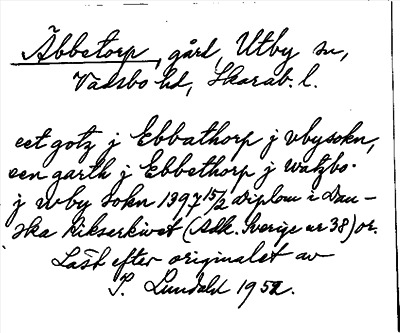 Äbbetorp, gård, Utby sn,
Vadsbo hd, Skarab. l.
eet gotz j Ebbathorp j vbysokn,
een garth j Ebbethorp j watzbo.
j wby sokn 1397 15/2 Diplom i Dan-
ska Rikserkivet (Adk. Sverige nr 38) or.
Läst efter originalet av
S. Lundahl 1952.